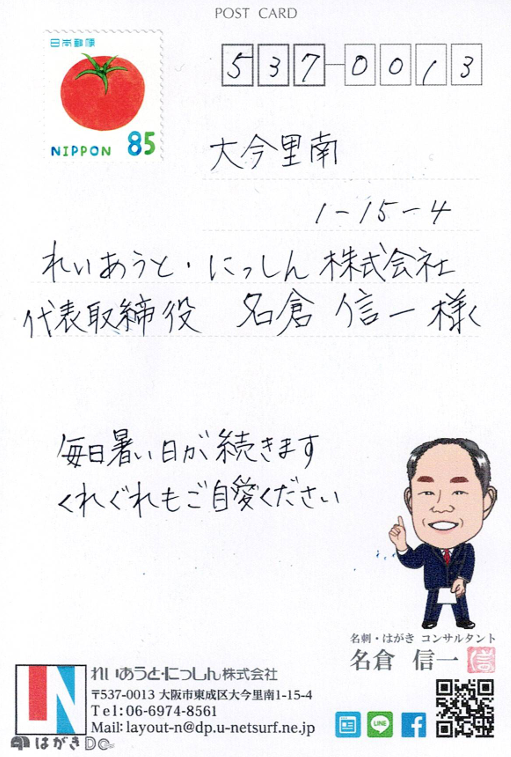 POST CARD
日本郵便
NIPPON 85
537-0013
大今里南
1-15-4
れいあうと・にっしん 株式会社
代表取締役 名倉 信一 様
毎日暑い日が続きます
くれぐれもご自愛ください
名刺・はがき コンサルタント
名倉 信一
れいあうと・にっしん株式会社
〒537-0013 大阪市東成区大今里南1-15-4
Tel:06-6974-8561
Mail:layout-n@dp.u-netsurf.ne.jp
LINE
はがきDo